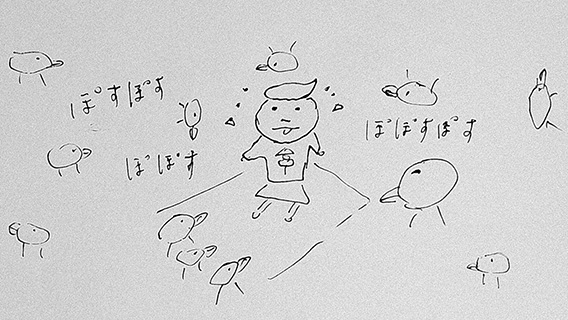 ぽすぽす
ぽぽす
ぽぽすぽす